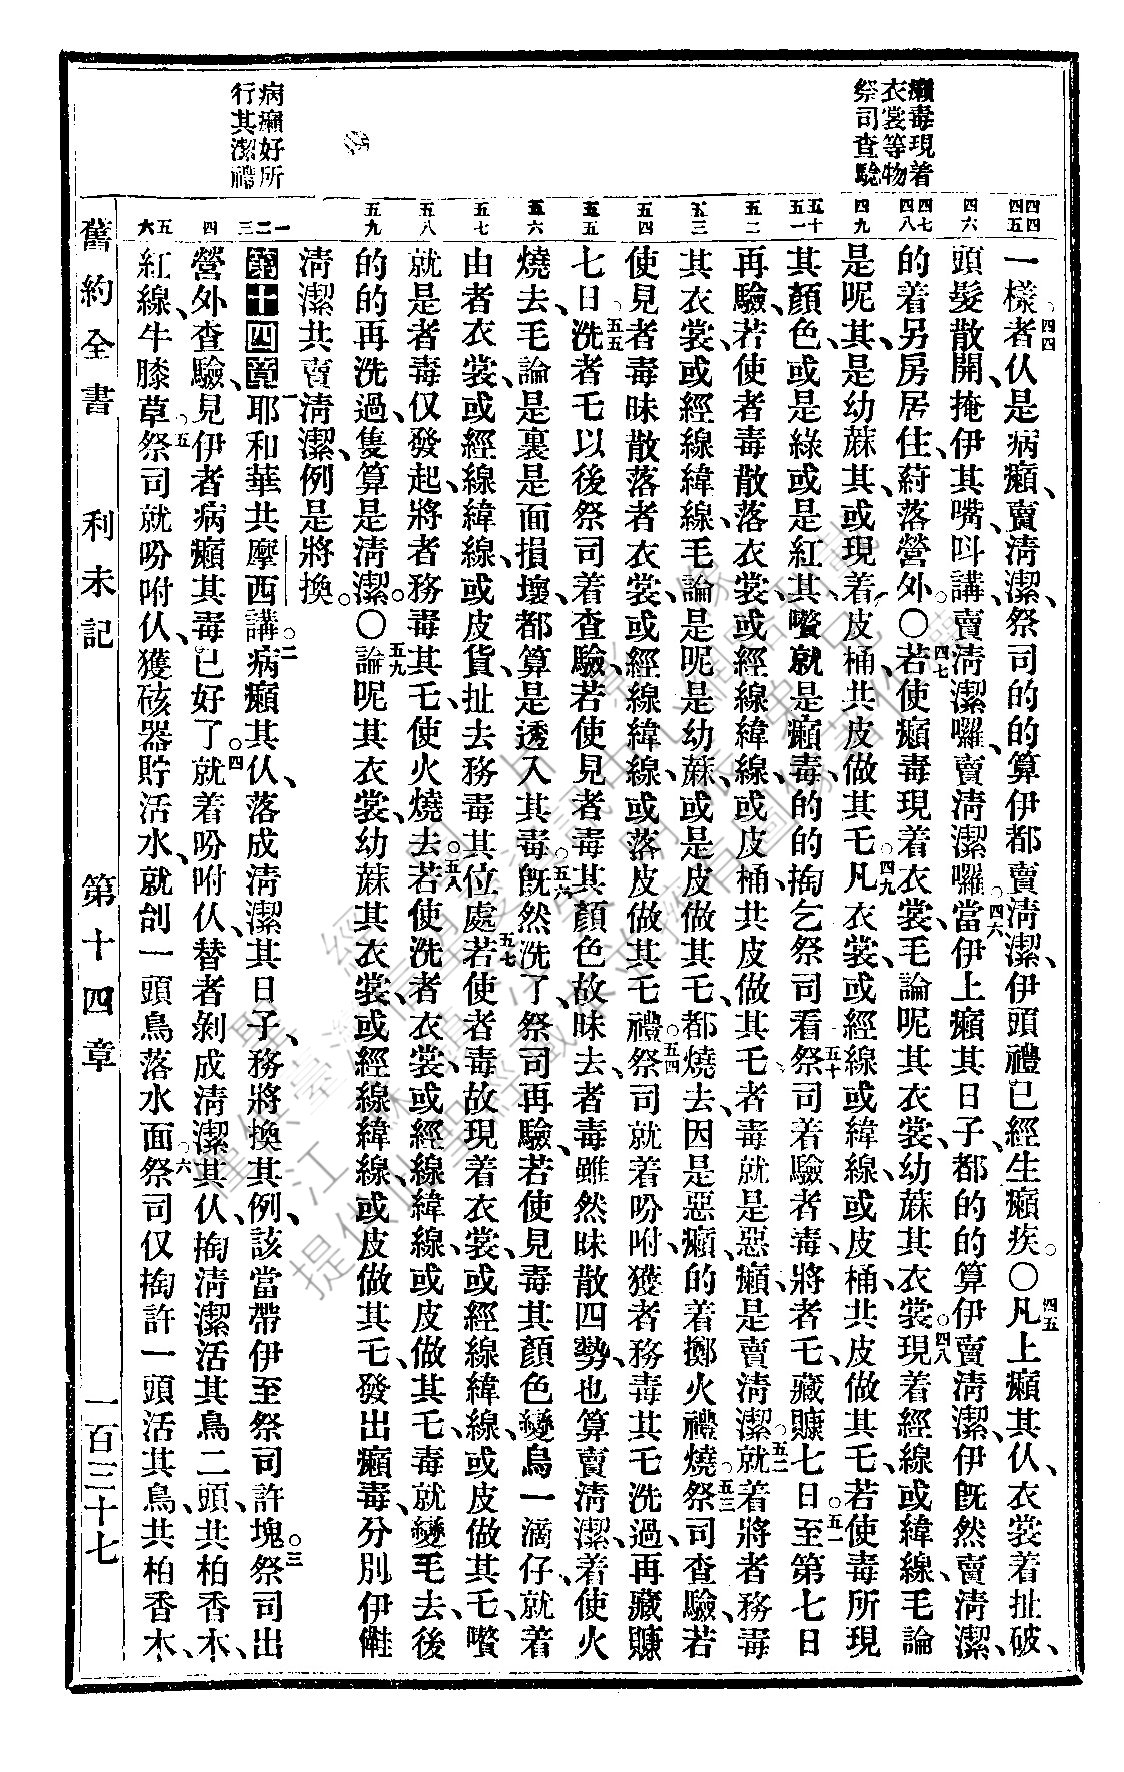 癩毒現着
衣裳等物
祭司查驗
病癩好所
行其潔禮
一樣者仈是病癩、賣淸潔、祭司的的算伊都賣淸潔、伊頭禮已經生癩疾。〇凡上癩其仈、衣裳着扯破、
頭髮散開、掩伊其嘴、叫講、賣淸潔囉、賣淸潔囉。當伊上癩其日子、都的的算伊賣淸潔、伊旣然賣淸潔、
的着另房居住、蒔落營外。〇若使癩毒現着衣裳、毛論呢其衣裳、幼蔴其衣裳。現着經線、或緯線、毛論
是呢其、是幼蔴其、或現着皮桶、共皮做其乇。凡衣裳、或經線、或緯線、或皮桶、共皮做其乇、若使毒所現
其顏色、或是綠、或是紅、其嚽就是癩毒、的的掏乞祭司看。祭司着驗者毒、將者乇藏賺七日。至第七日
再驗、若使者毒散落衣裳、或經線緯線、或皮桶、共皮做其乇、者毒就是惡癩、是賣淸潔。就着將者務毒
其衣裳、或經線緯線、毛論是呢是幼蔴、或是皮做其乇、都燒去、因是惡癩、的着擲火禮燒。祭司查驗、若
使見者毒昧散落者衣裳、或經線緯線、或落皮做其乇禮。祭司就着吩咐、獲者務毒其乇洗過、再藏賺
七日。洗者乇以後、祭司着查驗、若使見者毒其顏色故昧去、者毒雖然昧散四勢、也算賣淸潔、着使火
燒去、毛論是裏是面損壞、都算是透入其毒。旣然洗了、祭司再驗、若使見毒其顏色變烏一滴仔、就着
由者衣裳、或經線緯線、或皮貨、扯去務毒其位處。若使者毒故現着衣裳、或經線緯線、或皮做其乇、嚽
就是者毒仅發起、將者務毒其乇、使火燒去。若使洗者衣裳、或經線緯線、或皮做其乇、毒就變毛去、後
的的再洗過、隻算是淸潔。〇論呢其衣裳、幼蔴其衣裳、或經線緯線、或皮做其乇、發出癩毒、分別伊儺
淸潔共賣淸潔、例是將換。
第十四章耶和華共摩西講。病癩其仈、落成淸潔其日子、務將換其例、該當帶伊至祭司許塊。祭司出
營外查驗、見伊者病癩其毒已好了。就着吩咐仈、替者剝成淸潔其仈、掏淸潔活其鳥二頭、共柏香木、
紅線、牛膝草。祭司就吩咐仈、獲硋器貯活水、就刣一頭鳥落水面。祭司仅掏許一頭活其鳥、共柏香木、
舊約全書 利未記 第十四章 一百三十七